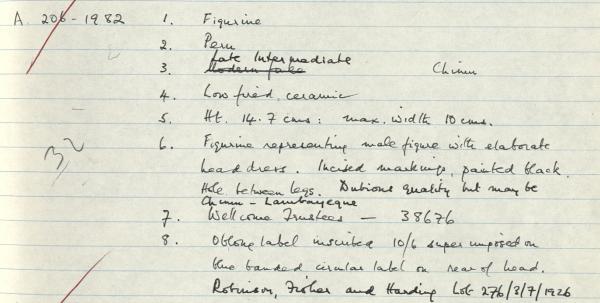 A. 206-1982 1. Figurine
2. Peru
Late Intermediate
3. Modern fake Chimu
4. Low fired ceramic
5. Ht. 14.7 cms: max. width 10 cms.
32
6. Figurine representing male figure with elaborate
headdress. Incised markings, painted black.
Hole between legs. Dubious quality but may be
Chimu - Lambayeque
7. Wellcome Trustees — 38676
8. Oblong label inscribed 10/6 superimposed on
blue banded circular label on rear of head.
Robinson, Fisher and Harding Lot 276/3/7/1926